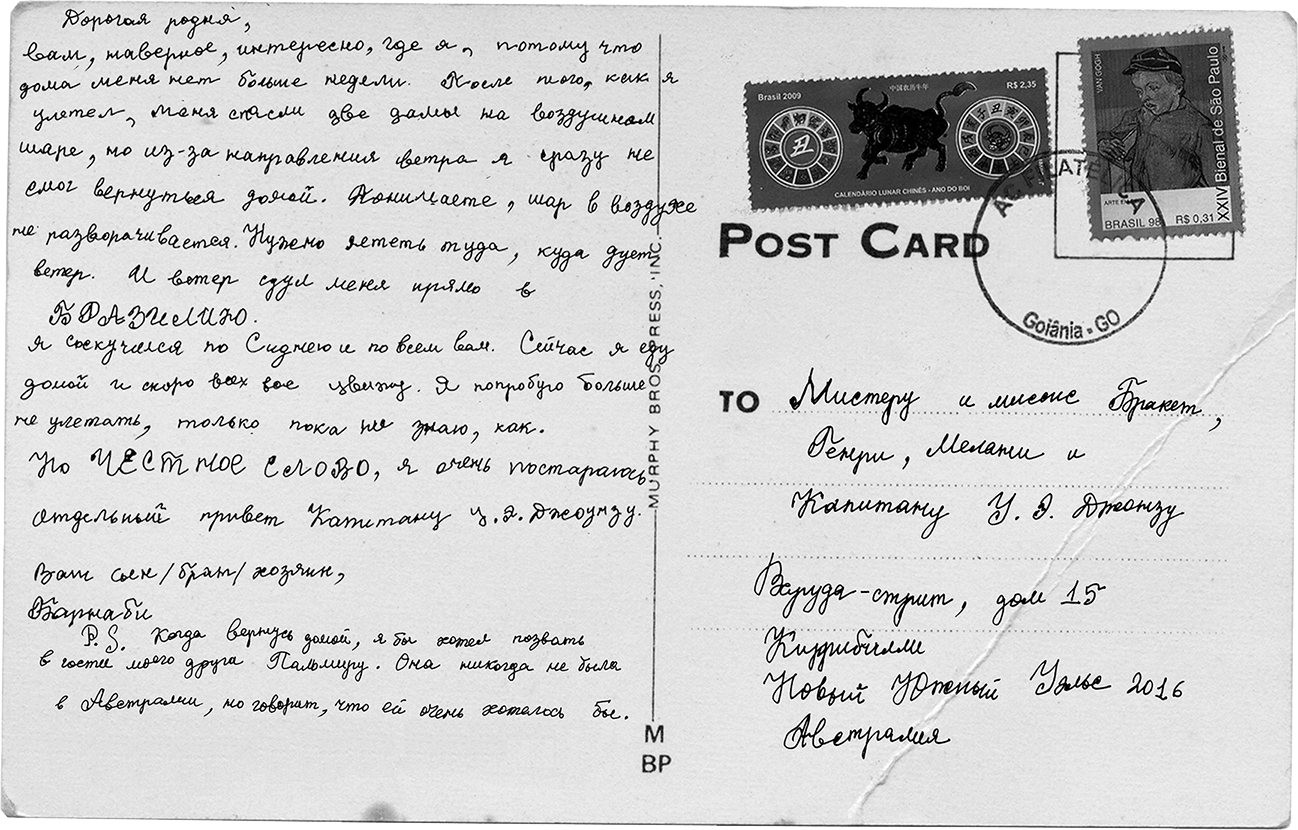 Дорогая родня,
вам, наверное, интересно, где я, потому что
дома меня нет больше недели. После того, как я
улетел, меня спасли две дамы на воздушном
шаре, но из-за направления ветра я сразу не
смог вернуться домой. Понимаете, шар в воздухе
не разворачивается. Нужно лететь туда, куда дует
ветер. И ветер сдул меня прямо в
БРАЗИЛИЮ.
Я соскучился по Сиднею и по всем вам. Сейчас я еду
домой и скоро всех вас увижу. Я попробую больше
не улетать, только пока не знаю, как.
Но ЧЕСТНОЕ СЛОВО, я очень постараюсь
отдельный привет Капитану У.Э. Джоунзу.
Ваш сын/брат/хозяин,
Барнаби
P.S. Когда вернусь домой, я бы хотел позвать
в гости моего друга Пальмиру. Она никогда не была
в Австралии, но говорит, что ей очень хотелось бы.
MURPHY BROS. PRESS, INC.
M
BP
Brasil 2009
中国农历牛年
R$ 2,35
丑
CALENDÁRIO LUNAR CHINÊS - ANO DO BOI
VAN GOGH
XXIV Bienal de São Paulo
BRASIL 98 R$ 0,31
Goiânia - GO
POST CARD
TO Мистеру и миссис Бракет,
Генри, Мелани и
Капитану У. Э. Джонзу
Вуруда-стрит, дом 15
Киррибилли
Новый Южный Уэльс 2016
Австралия